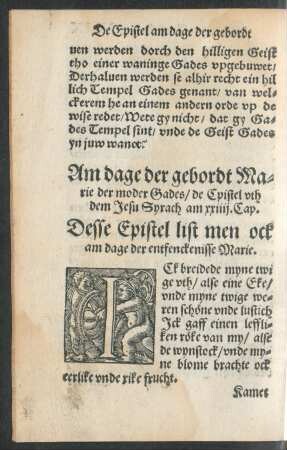 De Epistel am dage der gebordt
uen werden dorch den hilligen Geist
tho einer waninge Gades vpgebuwet/
Derhaluen werden se alhir recht ein hil
lich Tempel Gades genant/ van wel-
ckerem he an einem andern orde vp de
wise redet/ Wete gy nicht/ dat gy Ga-
des Tempel sint/ vnde de Geist Gades
yn juw wanet?
Am dage der gebordt Ma-
rie der moder Gades/ de Epistel vth
dem Jesu Sprach am xxiiij. Cap.
Desse Epistel list men ock
am dage der entfenckenisse Marie.
ICk breidede myne twi
ge vth/ alse eine Eke/
vnde myne twige we-
ren schöne vnde lustich
Jck gaff einen leffli-
ken röke van my/ alse
de wynstock/ vnde my-
ne blome brachte ock
eerlike vnde rike frucht.
Kamet